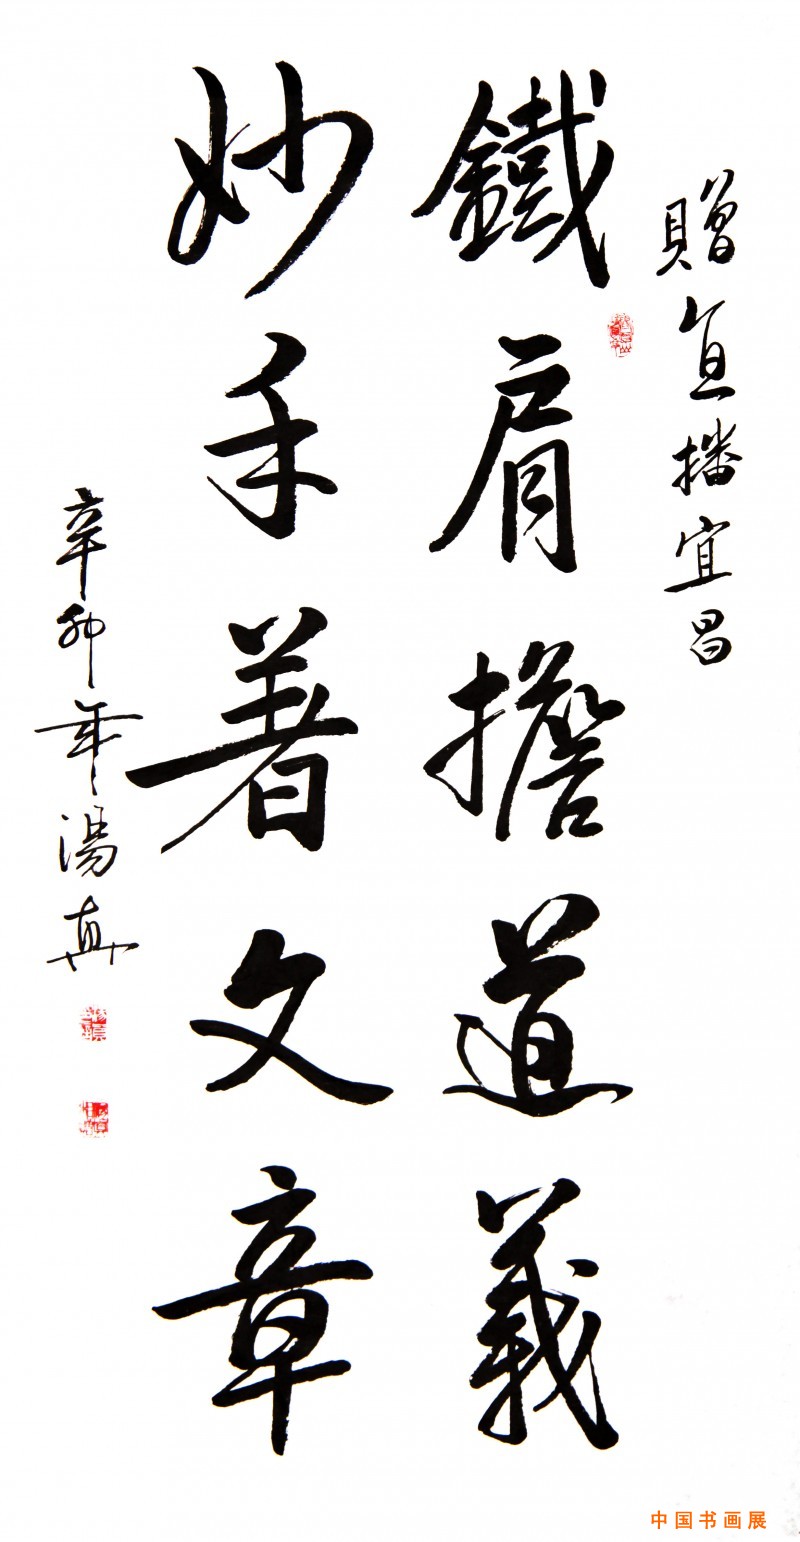 贈直播宜昌
鐵肩擔道義
妙手著文章
辛卯年湯真
中国书画展